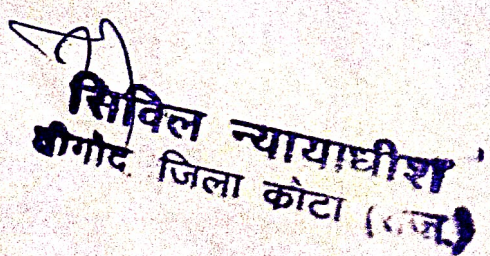 सिविल न्यायाधीश
दीगोद जिला कोटा (राज.)